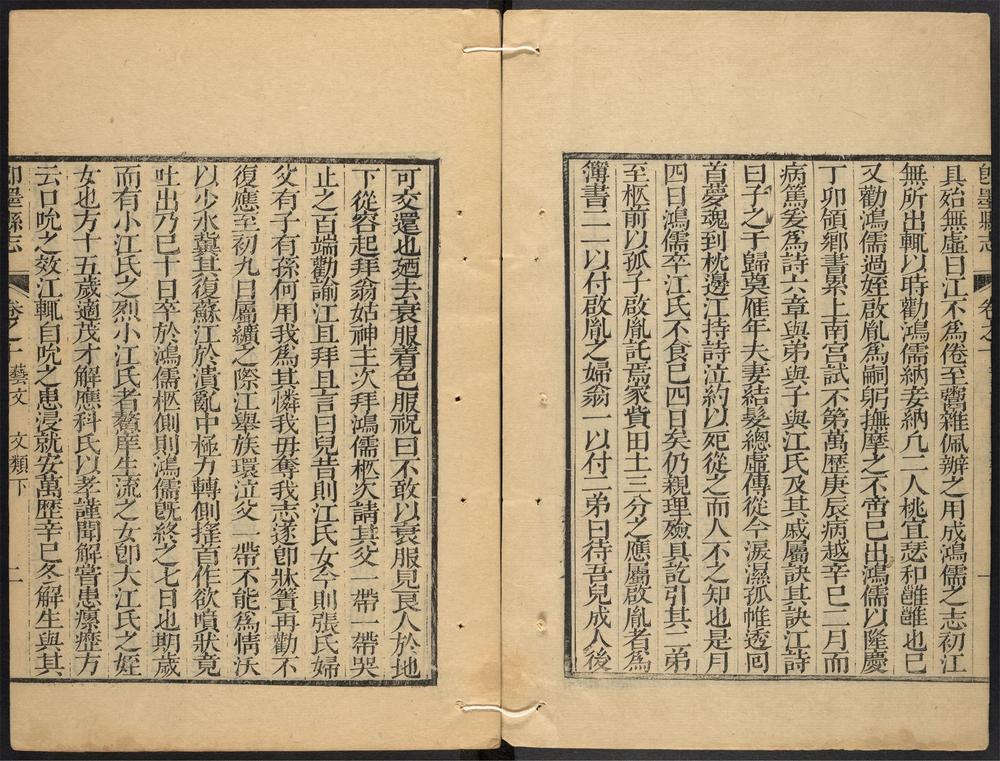 即墨縣志 卷之十
具始無虛日江不為倦至鬻雜佩辦之用成鴻儒之志初江
無所出輒以時勸鴻儒納妾納凡二人桃宜瑟和雝雝也已
又勸鴻儒過姪啟胤為嗣躬撫摩之不啻已出鴻儒以隆慶
丁卯領鄉書累上南宮試不第萬歷庚辰病越辛巳二月而
病篤爰為詩六章與弟與子與江氏及其戚屬訣其訣江詩
曰子之于歸奠雁年夫妻結髮總虛傳從今淚濕孤帷透回
首夢魂到枕邊江持詩泣約以死從之而人不之知也是月
四日鴻儒卒江氏不食已四日矣仍親理殮具訖引其二弟
至柩前以孤子啟胤託焉家貲田土三分之應屬啟胤者為
簿書二一以付啟胤之婦翁一以付二弟曰待吾兒成人後
可交還也廼去衰服着色服祝曰不敢以衰服見良人於地
下從容起拜翁姑神主次拜鴻儒柩次請其父一帶一帶哭
止之百端勸諭江且拜且言曰兒昔則江氏女今則張氏婦
父有子有孫何用我為其憐我毋奪我志遂卽牀簀再勸不
復應至初九日屬纊之際江舉族環泣父一帶不能為情沃
以少水冀其復蘇江於潰亂中極力轉側搖首作欲噴狀竟
吐出乃已十日卒於鴻儒柩側則鴻儒旣終之七日也期歲
而有小江氏之烈小江氏者鰲庠生流之女卽大江氏之姪
女也方十五歲適茂才解應科氏以孝謹聞解嘗患瘰癧方
云口吮之效江輒自吮之患浸就安萬歷辛巳冬解生與其
即墨縣志 卷之十 藝文 文類下 二